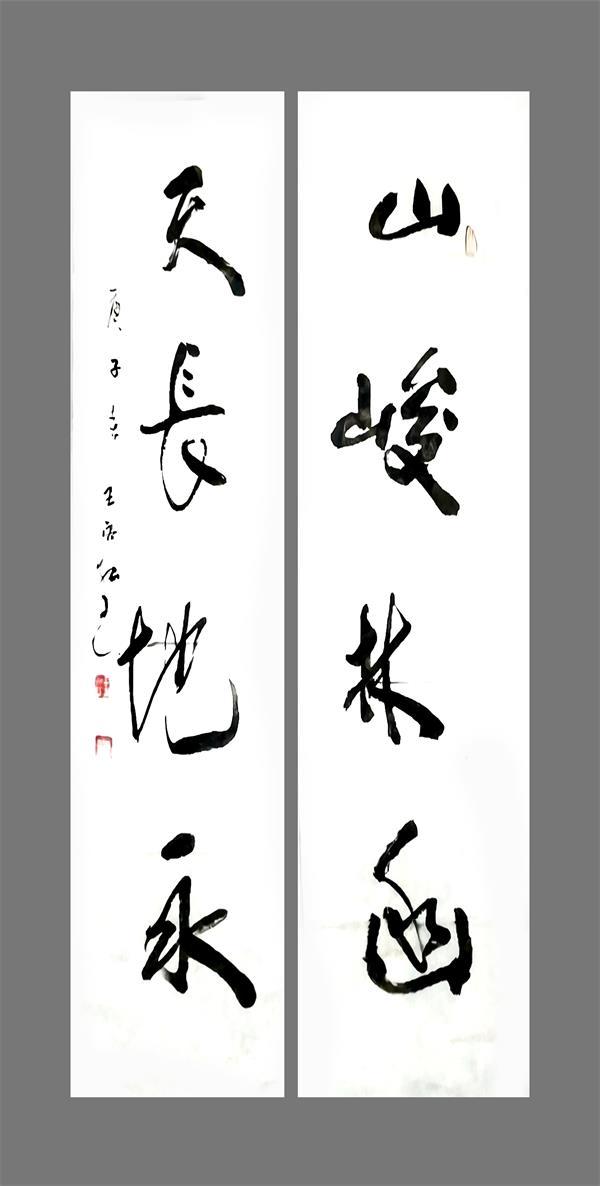 山峻林幽
天長地永
庚子春 王